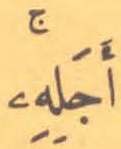 ج
أَجَلِهِۦ